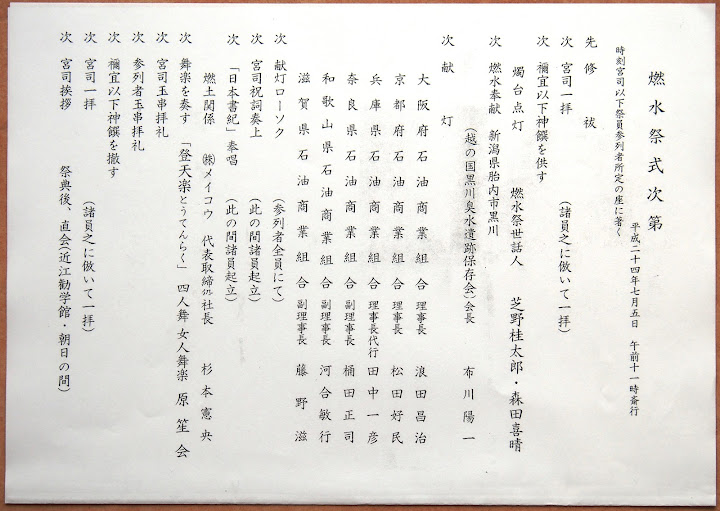 燃水祭式次第
平成二十四年七月五日　午前十一時斎行
時刻宮司以下祭員参列者所定の座に著く
先　修　祓
次　宮司一拝　（諸員之に倣いて一拝）
次　禰宜以下神饌を供す
燭台点灯　燃水祭世話人　芝野桂太郎・森田喜晴
次　燃水奉献　新潟県胎内市黒川
（越の国黒川臭水遺跡保存会）会長　布川陽一
次　献　灯
大阪府石油商業組合　理事長　浪田昌治
京都府石油商業組合　理事長　松田好民
兵庫県石油商業組合　理事長代行　田中一彦
奈良県石油商業組合　副理事長　桶田正司
和歌山県石油商業組合　副理事長　河合敏行
滋賀県石油商業組合　副理事長　藤野滋
次　献灯ローソク　（参列者全員にて）
次　宮司祝詞奏上　（此の間諸員起立）
次　「日本書紀」奏唱　（此の間諸員起立）
燃土関係　㈱メイコウ　代表取締役社長　杉本憲央
次　舞楽を奏す　「登天楽とうてんらく」　四人舞　女人舞楽　原笙会
次　宮司玉串拝礼
次　参列者玉串拝礼
次　禰宜以下神饌を撤す
次　宮司一拝　（諸員之に倣いて一拝）
次　宮司挨拶　祭典後、直会（近江勧学館・朝日の間）